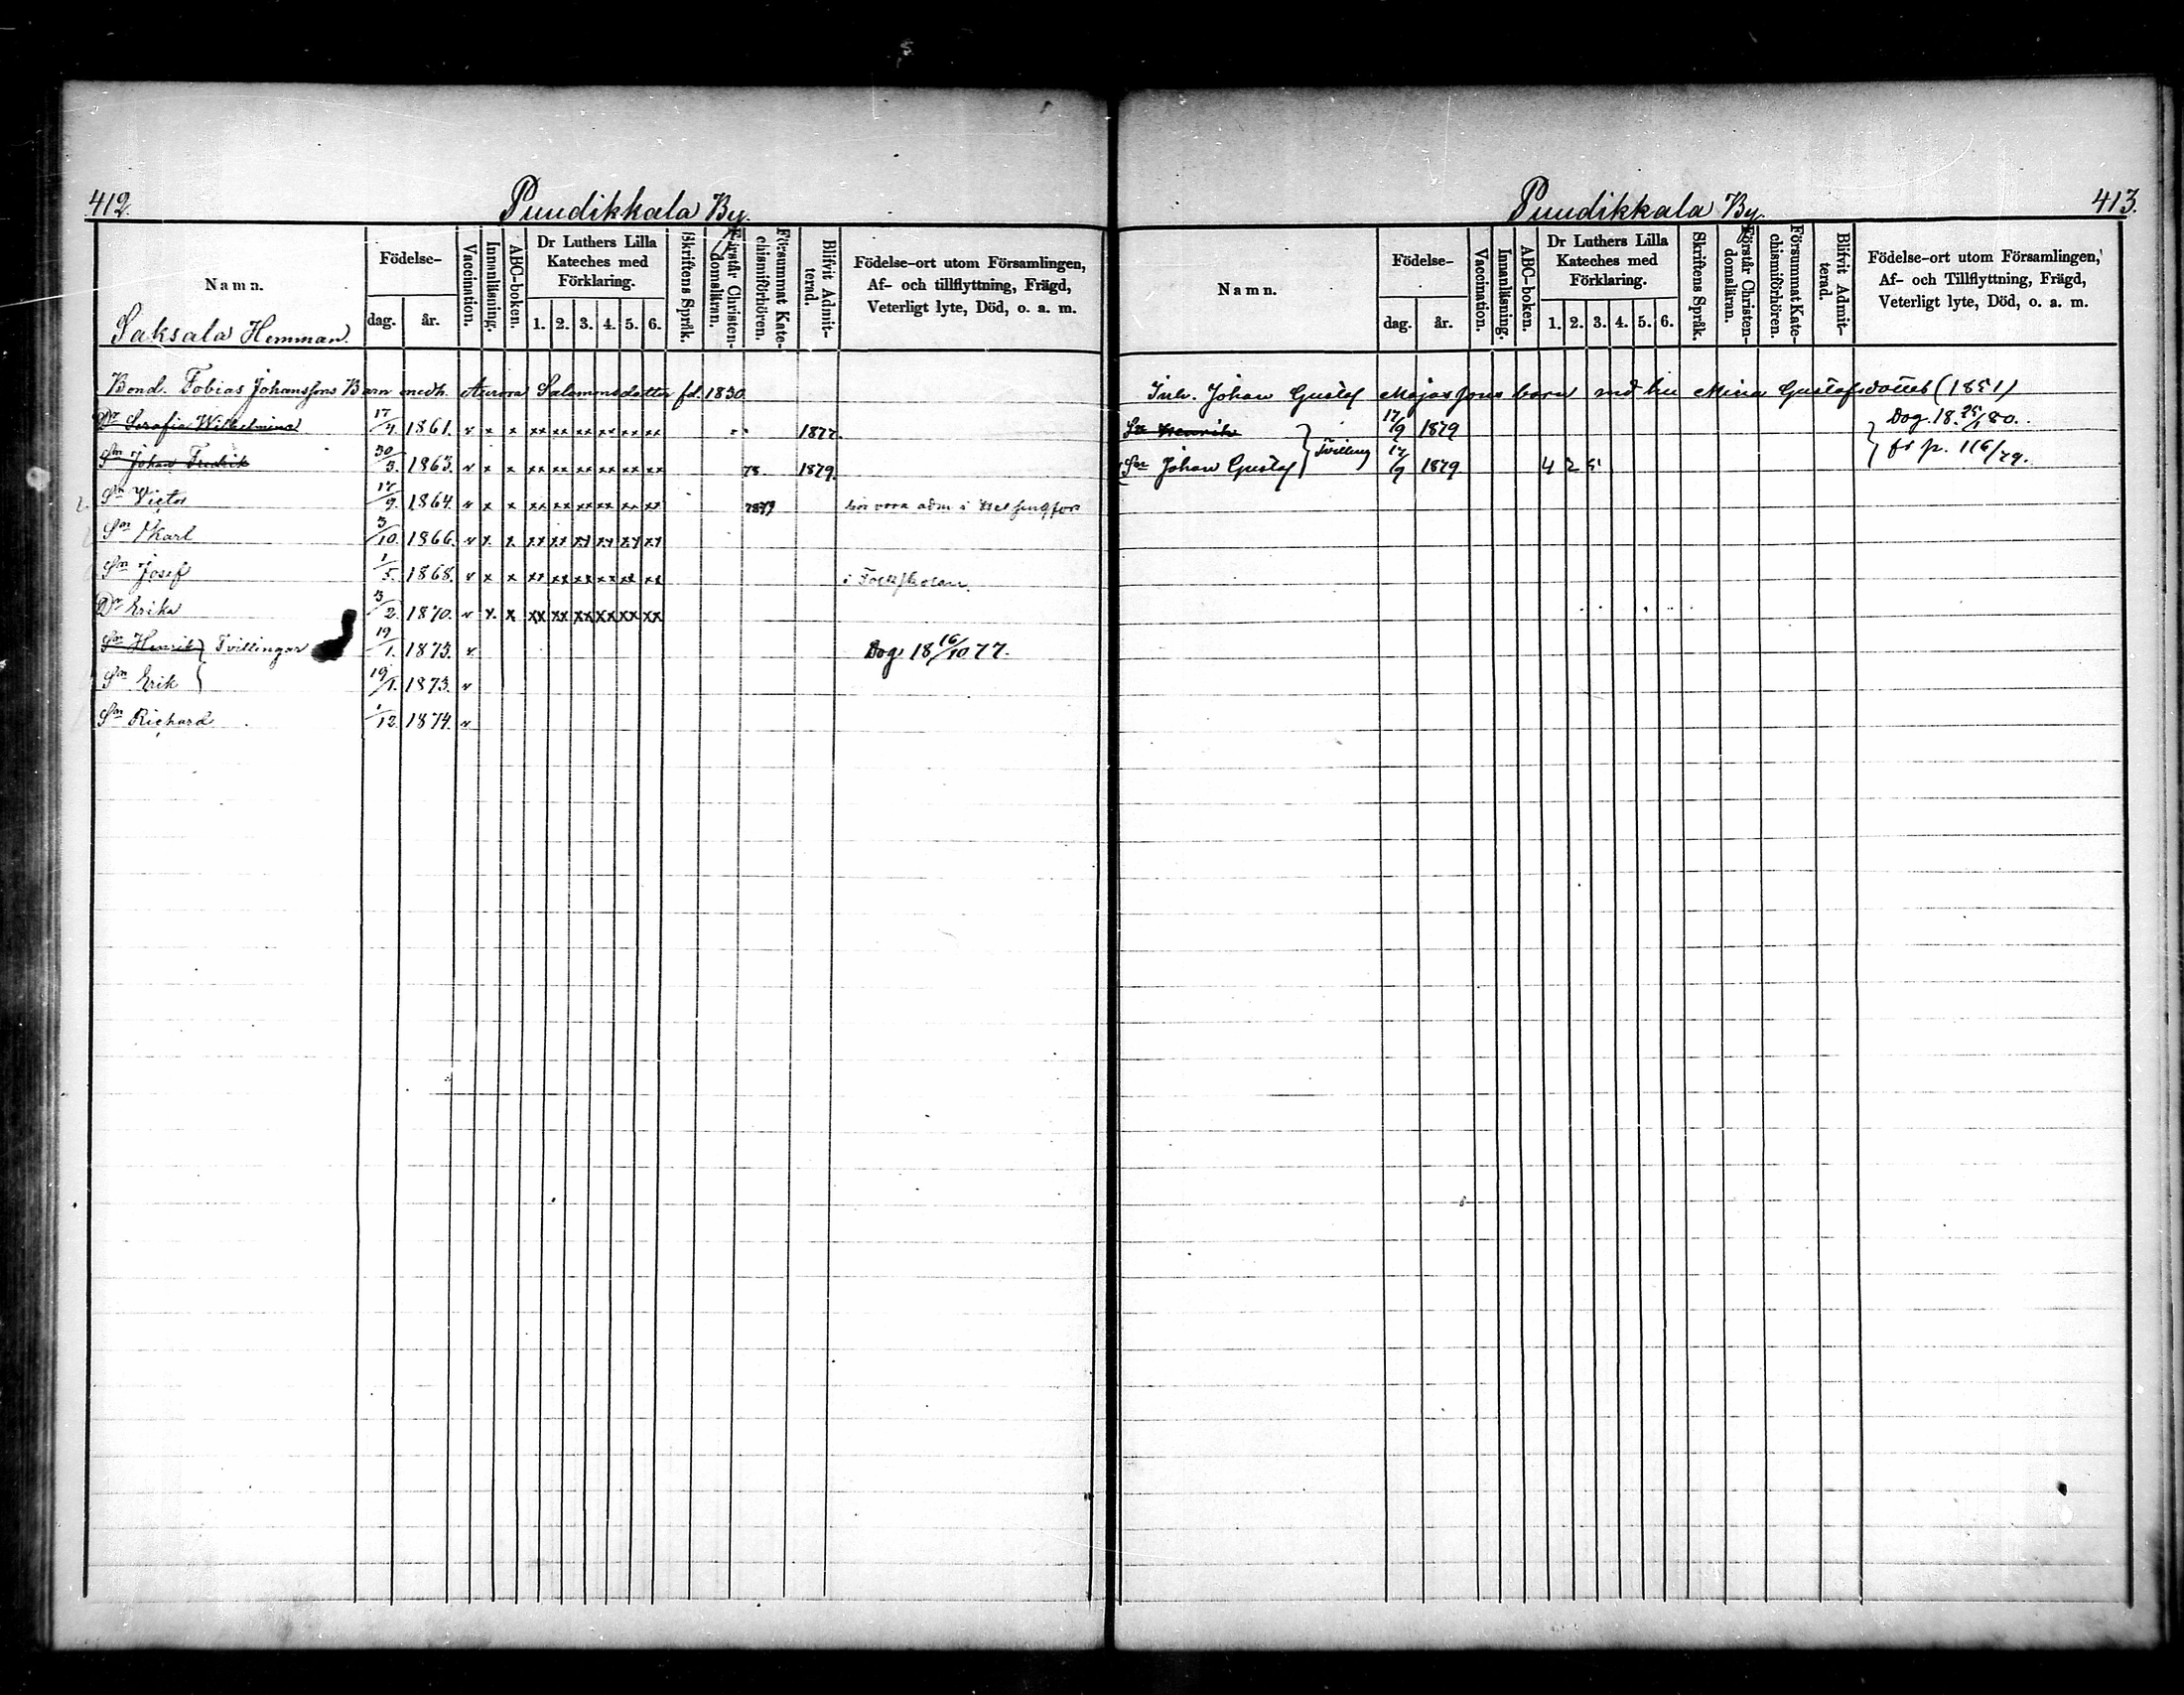 412.
Puudikkala By.
Namn.
Saksala Hemman.
Födelse-
dag. år.
Vaccination.
Innanläsning.
ABC-boken.
Dr Luthers Lilla
Kateches med
Förklaring.
1. 2. 3. 4. 5. 6.
Skriftens Språk.
Förstår Christen-
domsläran.
Försummat Kate-
chismiförhören.
Blifvit Admit-
terad.
Födelse-ort utom Församlingen,
Af- och tillflyttning, Frägd,
Veterligt lyte, Död, o. a. m.
Bond. Tobias Johanssons Barn medh. Aurora Salomonsdotter fd. 1830.
Dr Serafia Wilhelmina 17/4. 1861. v x x xx xx xx xx xx xx 1877.
Sn Johan Fredrik 30/3. 1863. v x x xx xx xx xx xx xx 78 1879.
Sn Victor 17/9. 1864. v x x xx xx xx xx xx xx 1879 vora adm i Helsingfors
Sn Karl 3/10. 1866. v x. x xx xx xx xx xx xx
Sn Josef 1/5. 1868. v x x xx xx xx xx xx xx i Folkskolan.
Dr Erika 3/2. 1870. v x. x xx xx xx xx xx xx
Sn Henrik } Tvillingar 19/1. 1873. v Dog 18 16/10 77.
Sn Erik } 19/1. 1873. v
Sn Richard 1/12. 1874. v
413.
Puudikkala By.
Namn.
Födelse-
dag. år.
Vaccination.
Innanläsning.
ABC-boken.
Dr Luthers Lilla
Kateches med
Förklaring.
1. 2. 3. 4. 5. 6.
Skriftens Språk.
Förstår Christen-
domsläran.
Försummat Kate-
chismiförhören.
Blifvit Admit-
terad.
Födelse-ort utom Församlingen,
Af- och Tillflyttning, Frägd,
Veterligt lyte, Död, o. a. m.
Inh. Johan Gustaf Majassons barn md hu Mina Gustafsdotter (1851)
Sn Henrik } Tvilling 17/9 1879 Dog. 18. 25/1 80.
Sn Johan Gustaf } 17/9 1879 4 2 5 } fr p. 116/79.